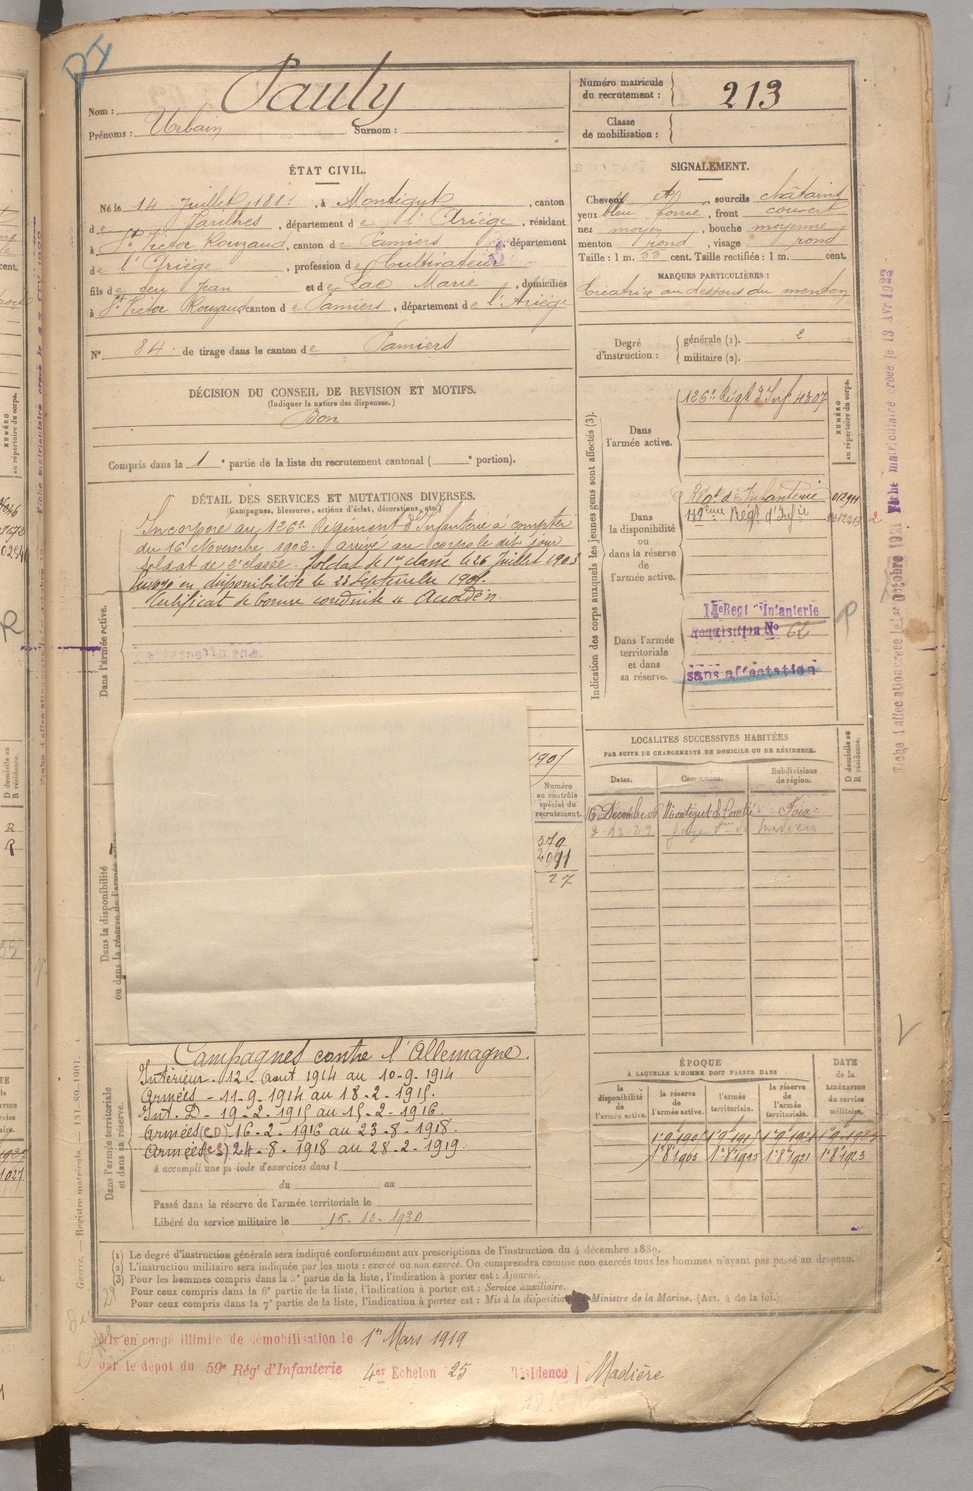 Nom : Pauly
Prénoms : Urbain Surnom :
Numéro matricule du recrutement : 213
Classe de mobilisation :
ÉTAT CIVIL.
Né le 14 Juillet 1881, à Montégut, canton
de Varilhes, département de l'Ariège, résidant
à St Victor Rouzaud, canton de Pamiers, département
de l'Ariège, profession de Cultivateur
fils de feu Jean et de Lao Marie, domiciliés
à St Victor Rouzaud canton de Pamiers, département de l'Ariège
N° 84 de tirage dans le canton de Pamiers
DÉCISION DU CONSEIL DE REVISION ET MOTIFS.
(Indiquer la nature des dispenses.)
Bon
Compris dans la 1e partie de la liste du recrutement cantonal ( e portion).
SIGNALEMENT.
Cheveux et, sourcils châtains
yeux bleu foncé, front couvert
nez moyen, bouche moyenne
menton rond, visage rond
Taille : 1 m. 55 cent. Taille rectifiée : 1 m. cent.
MARQUES PARTICULIÈRES :
Cicatrice au dessous du menton
Degré d'instruction : générale (1). 2
militaire (2).
DÉTAIL DES SERVICES ET MUTATIONS DIVERSES.
(Campagnes, blessures, actions d'éclat, décorations, etc.)
Incorporé au 126e Régiment d'Infanterie à compter
du 16 Novembre 1902. arrivé au corps le dit jour
soldat de 2e classe. Soldat de 1re classe le 26 juillet 1903
Envoyé en disponibilité le 23 septembre 1905.
Certificat de bonne conduite « Accordé ».
Dans l'armée active.
Dans la disponibilité
ou dans la réserve de l'armée active
1905
Numéro
au contrôle
spécial du
recrutement.
370
2091
27
Indication des corps auxquels les jeunes gens sont affectés (3).
NUMÉRO
au répertoire du corps.
Dans
l'armée active.
126e Régt d'Inf 4307
Dans
la disponibilité
ou
dans la réserve
de
l'armée active.
Régt d'Infanterie 01294
Régt d'Infie
Dans l'armée
territoriale
et dans
sa réserve.
14e Regt d'Infanterie
Réquisition No 62
sans affectation
LOCALITÉS SUCCESSIVES HABITÉES
PAR SUITE DE CHANGEMENTS DE DOMICILE OU DE RÉSIDENCE.
Dates. Communes. Subdivisions de région.
D domicile ou
R résidence.
Foix
Dans l'armée territoriale
et dans sa réserve.
Campagnes contre l'Allemagne.
Intérieur. 12 Aout 1914 au 10-9-1914
Armées - 11-9-1914 au 18-2-1915.
Int. D - 19-2-1915 au 15-2-1916.
Armées (CD) 16-2-1916 au 23-8-1918.
Armées (CS) 24-8-1918 au 28-2-1919.
à accompli une période d'exercices dans l
du au
Passé dans la réserve de l'armée territoriale le
Libéré du service militaire le 15-10-1930
ÉPOQUE
À LAQUELLE L'HOMME DOIT PASSER DANS
la disponibilité de l'armée active.
la réserve de l'armée active.
l'armée territoriale.
la réserve de l'armée territoriale.
DATE de la LIBÉRATION du service militaire.
(1) Le degré d'instruction générale sera indiqué conformément aux prescriptions de l'instruction du 4 décembre 1889.
(2) L'instruction militaire sera indiquée par les mots : exercé ou non exercé. On comprendra comme non exercés tous les hommes n'ayant pas passé au drapeau.
(3) Pour les hommes compris dans la 5e partie de la liste, l'indication à porter est : Ajourné.
Pour ceux compris dans la 6e partie de la liste, l'indication à porter est : Service auxiliaire.
Pour ceux compris dans la 7e partie de la liste, l'indication à porter est : Mis à la disposition Ministre de la Marine. (Art. 4 de la loi.)
Mis en congé illimité de démobilisation le 1er Mars 1919
par le dépot du 59e Rég' d'Infanterie 4er Echelon 25 Résidence Madière